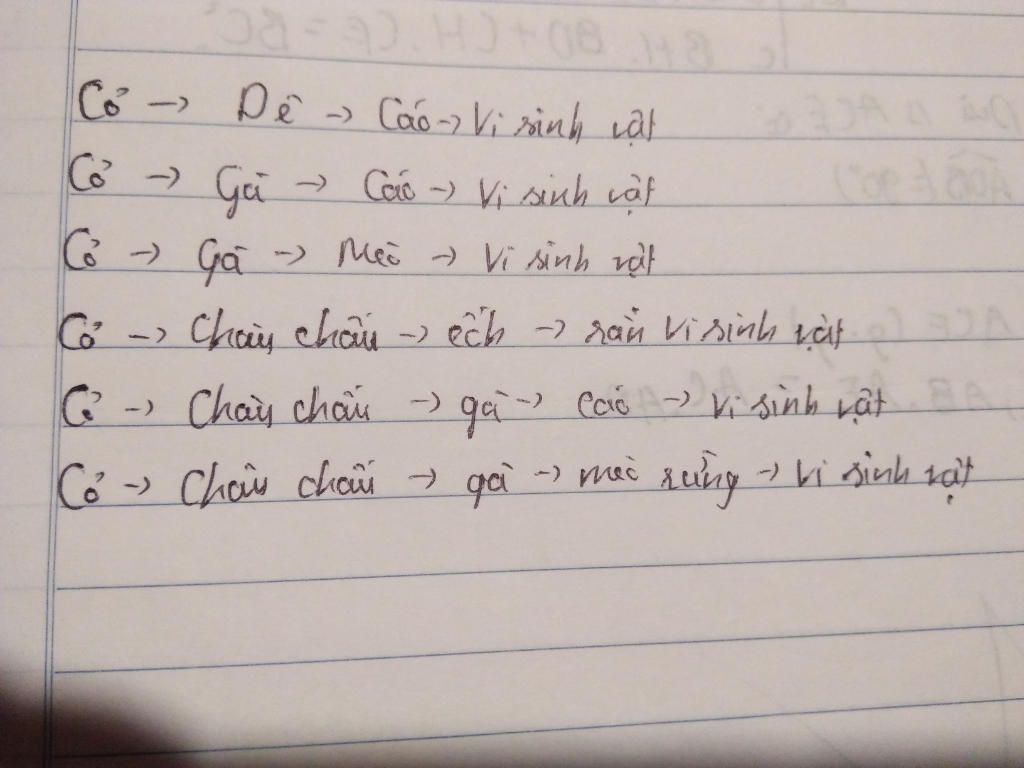 Cỏ → Dê → Cáo → Vi sinh vật
Cỏ → Gà → Cáo → Vi sinh vật
Cỏ → Gà → Mèo → Vi sinh vật
Cỏ → Châu chấu → ếch → rắn vi sinh vật
Cỏ → Châu chấu → gà → cáo → vi sinh vật
Cỏ → Châu chấu → gà → mèo rừng → vi sinh vật